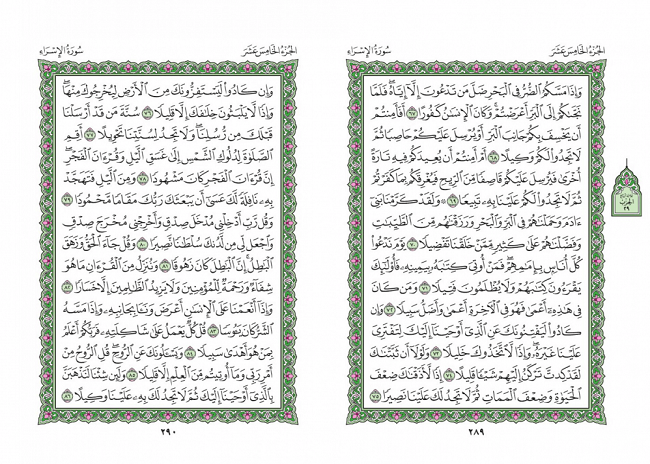 الجزء الخامس عشر
سورة الإسراء
وَإِذَا مَسَّكُمُ ٱلضُّرُّ فِي ٱلۡبَحۡرِ ضَلَّ مَن تَدۡعُونَ إِلَّآ إِيَّاهُۖ فَلَمَّا
نَجَّىٰكُمۡ إِلَى ٱلۡبَرِّ أَعۡرَضۡتُمۡۚ وَكَانَ ٱلۡإِنسَٰنُ كَفُورًا ٦٧ أَفَأَمِنتُمۡ
أَن يَخۡسِفَ بِكُمۡ جَانِبَ ٱلۡبَرِّ أَوۡ يُرۡسِلَ عَلَيۡكُمۡ حَاصِبٗا ثُمَّ
لَا تَجِدُواْ لَكُمۡ وَكِيلًا ٦٨ أَمۡ أَمِنتُمۡ أَن يُعِيدَكُمۡ فِيهِ تَارَةً
أُخۡرَىٰ فَيُرۡسِلَ عَلَيۡكُمۡ قَاصِفٗا مِّنَ ٱلرِّيحِ فَيُغۡرِقَكُم بِمَا كَفَرۡتُمۡ ثُمَّ
لَا تَجِدُواْ لَكُمۡ عَلَيۡنَا بِهِۦ تَبِيعٗا ٦٩ ۞ وَلَقَدۡ كَرَّمۡنَا بَنِيٓ
ءَادَمَ وَحَمَلۡنَٰهُمۡ فِي ٱلۡبَرِّ وَٱلۡبَحۡرِ وَرَزَقۡنَٰهُم مِّنَ ٱلطَّيِّبَٰتِ
وَفَضَّلۡنَٰهُمۡ عَلَىٰ كَثِيرٖ مِّمَّنۡ خَلَقۡنَا تَفۡضِيلٗا ٧٠ يَوۡمَ نَدۡعُواْ
كُلَّ أُنَاسِۭ بِإِمَٰمِهِمۡۖ فَمَنۡ أُوتِيَ كِتَٰبَهُۥ بِيَمِينِهِۦ فَأُوْلَٰٓئِكَ
يَقۡرَءُونَ كِتَٰبَهُمۡ وَلَا يُظۡلَمُونَ فَتِيلٗا ٧١ وَمَن كَانَ
فِي هَٰذِهِۦٓ أَعۡمَىٰ فَهُوَ فِي ٱلۡأٓخِرَةِ أَعۡمَىٰ وَأَضَلُّ سَبِيلٗا ٧٢ وَإِن
كَادُواْ لَيَفۡتِنُونَكَ عَنِ ٱلَّذِيٓ أَوۡحَيۡنَآ إِلَيۡكَ لِتَفۡتَرِيَ
عَلَيۡنَا غَيۡرَهُۥۖ وَإِذٗا لَّٱتَّخَذُوكَ خَلِيلٗا ٧٣ وَلَوۡلَآ أَن ثَبَّتۡنَٰكَ
لَقَدۡ كِدتَّ تَرۡكَنُ إِلَيۡهِمۡ شَيۡـٔٗا قَلِيلًا ٧٤ إِذٗا لَّأَذَقۡنَٰكَ ضِعۡفَ
ٱلۡحَيَوٰةِ وَضِعۡفَ ٱلۡمَمَاتِ ثُمَّ لَا تَجِدُ لَكَ عَلَيۡنَا نَصِيرٗا ٧٥
٢٨٩
الحزب
٢٩
الجزء الخامس عشر
سورة الإسراء
وَإِن كَادُواْ لَيَسۡتَفِزُّونَكَ مِنَ ٱلۡأَرۡضِ لِيُخۡرِجُوكَ مِنۡهَاۖ
وَإِذٗا لَّا يَلۡبَثُونَ خِلَٰفَكَ إِلَّا قَلِيلٗا ٧٦ سُنَّةَ مَن قَدۡ أَرۡسَلۡنَا
قَبۡلَكَ مِن رُّسُلِنَاۖ وَلَا تَجِدُ لِسُنَّتِنَا تَحۡوِيلًا ٧٧ أَقِمِ
ٱلصَّلَوٰةَ لِدُلُوكِ ٱلشَّمۡسِ إِلَىٰ غَسَقِ ٱلَّيۡلِ وَقُرۡءَانَ ٱلۡفَجۡرِۖ
إِنَّ قُرۡءَانَ ٱلۡفَجۡرِ كَانَ مَشۡهُودٗا ٧٨ وَمِنَ ٱلَّيۡلِ فَتَهَجَّدۡ
بِهِۦ نَافِلَةٗ لَّكَ عَسَىٰٓ أَن يَبۡعَثَكَ رَبُّكَ مَقَامٗا مَّحۡمُودٗا ٧٩
وَقُل رَّبِّ أَدۡخِلۡنِي مُدۡخَلَ صِدۡقٖ وَأَخۡرِجۡنِي مُخۡرَجَ صِدۡقٖ
وَٱجۡعَل لِّي مِن لَّدُنكَ سُلۡطَٰنٗا نَّصِيرٗا ٨٠ وَقُلۡ جَآءَ ٱلۡحَقُّ وَزَهَقَ
ٱلۡبَٰطِلُۚ إِنَّ ٱلۡبَٰطِلَ كَانَ زَهُوقٗا ٨١ وَنُنَزِّلُ مِنَ ٱلۡقُرۡءَانِ مَا هُوَ
شِفَآءٞ وَرَحۡمَةٞ لِّلۡمُؤۡمِنِينَ وَلَا يَزِيدُ ٱلظَّٰلِمِينَ إِلَّا خَسَارٗا ٨٢
وَإِذَآ أَنۡعَمۡنَا عَلَى ٱلۡإِنسَٰنِ أَعۡرَضَ وَنَـَٔا بِجَانِبِهِۦ وَإِذَا مَسَّهُ
ٱلشَّرُّ كَانَ يَـُٔوسٗا ٨٣ قُلۡ كُلّٞ يَعۡمَلُ عَلَىٰ شَاكِلَتِهِۦ فَرَبُّكُمۡ أَعۡلَمُ
بِمَنۡ هُوَ أَهۡدَىٰ سَبِيلٗا ٨٤ وَيَسۡـَٔلُونَكَ عَنِ ٱلرُّوحِۖ قُلِ ٱلرُّوحُ مِنۡ
أَمۡرِ رَبِّي وَمَآ أُوتِيتُم مِّنَ ٱلۡعِلۡمِ إِلَّا قَلِيلٗا ٨٥ وَلَئِن شِئۡنَا لَنَذۡهَبَنَّ
بِٱلَّذِيٓ أَوۡحَيۡنَآ إِلَيۡكَ ثُمَّ لَا تَجِدُ لَكَ بِهِۦ عَلَيۡنَا وَكِيلًا ٨٦
٢٩٠